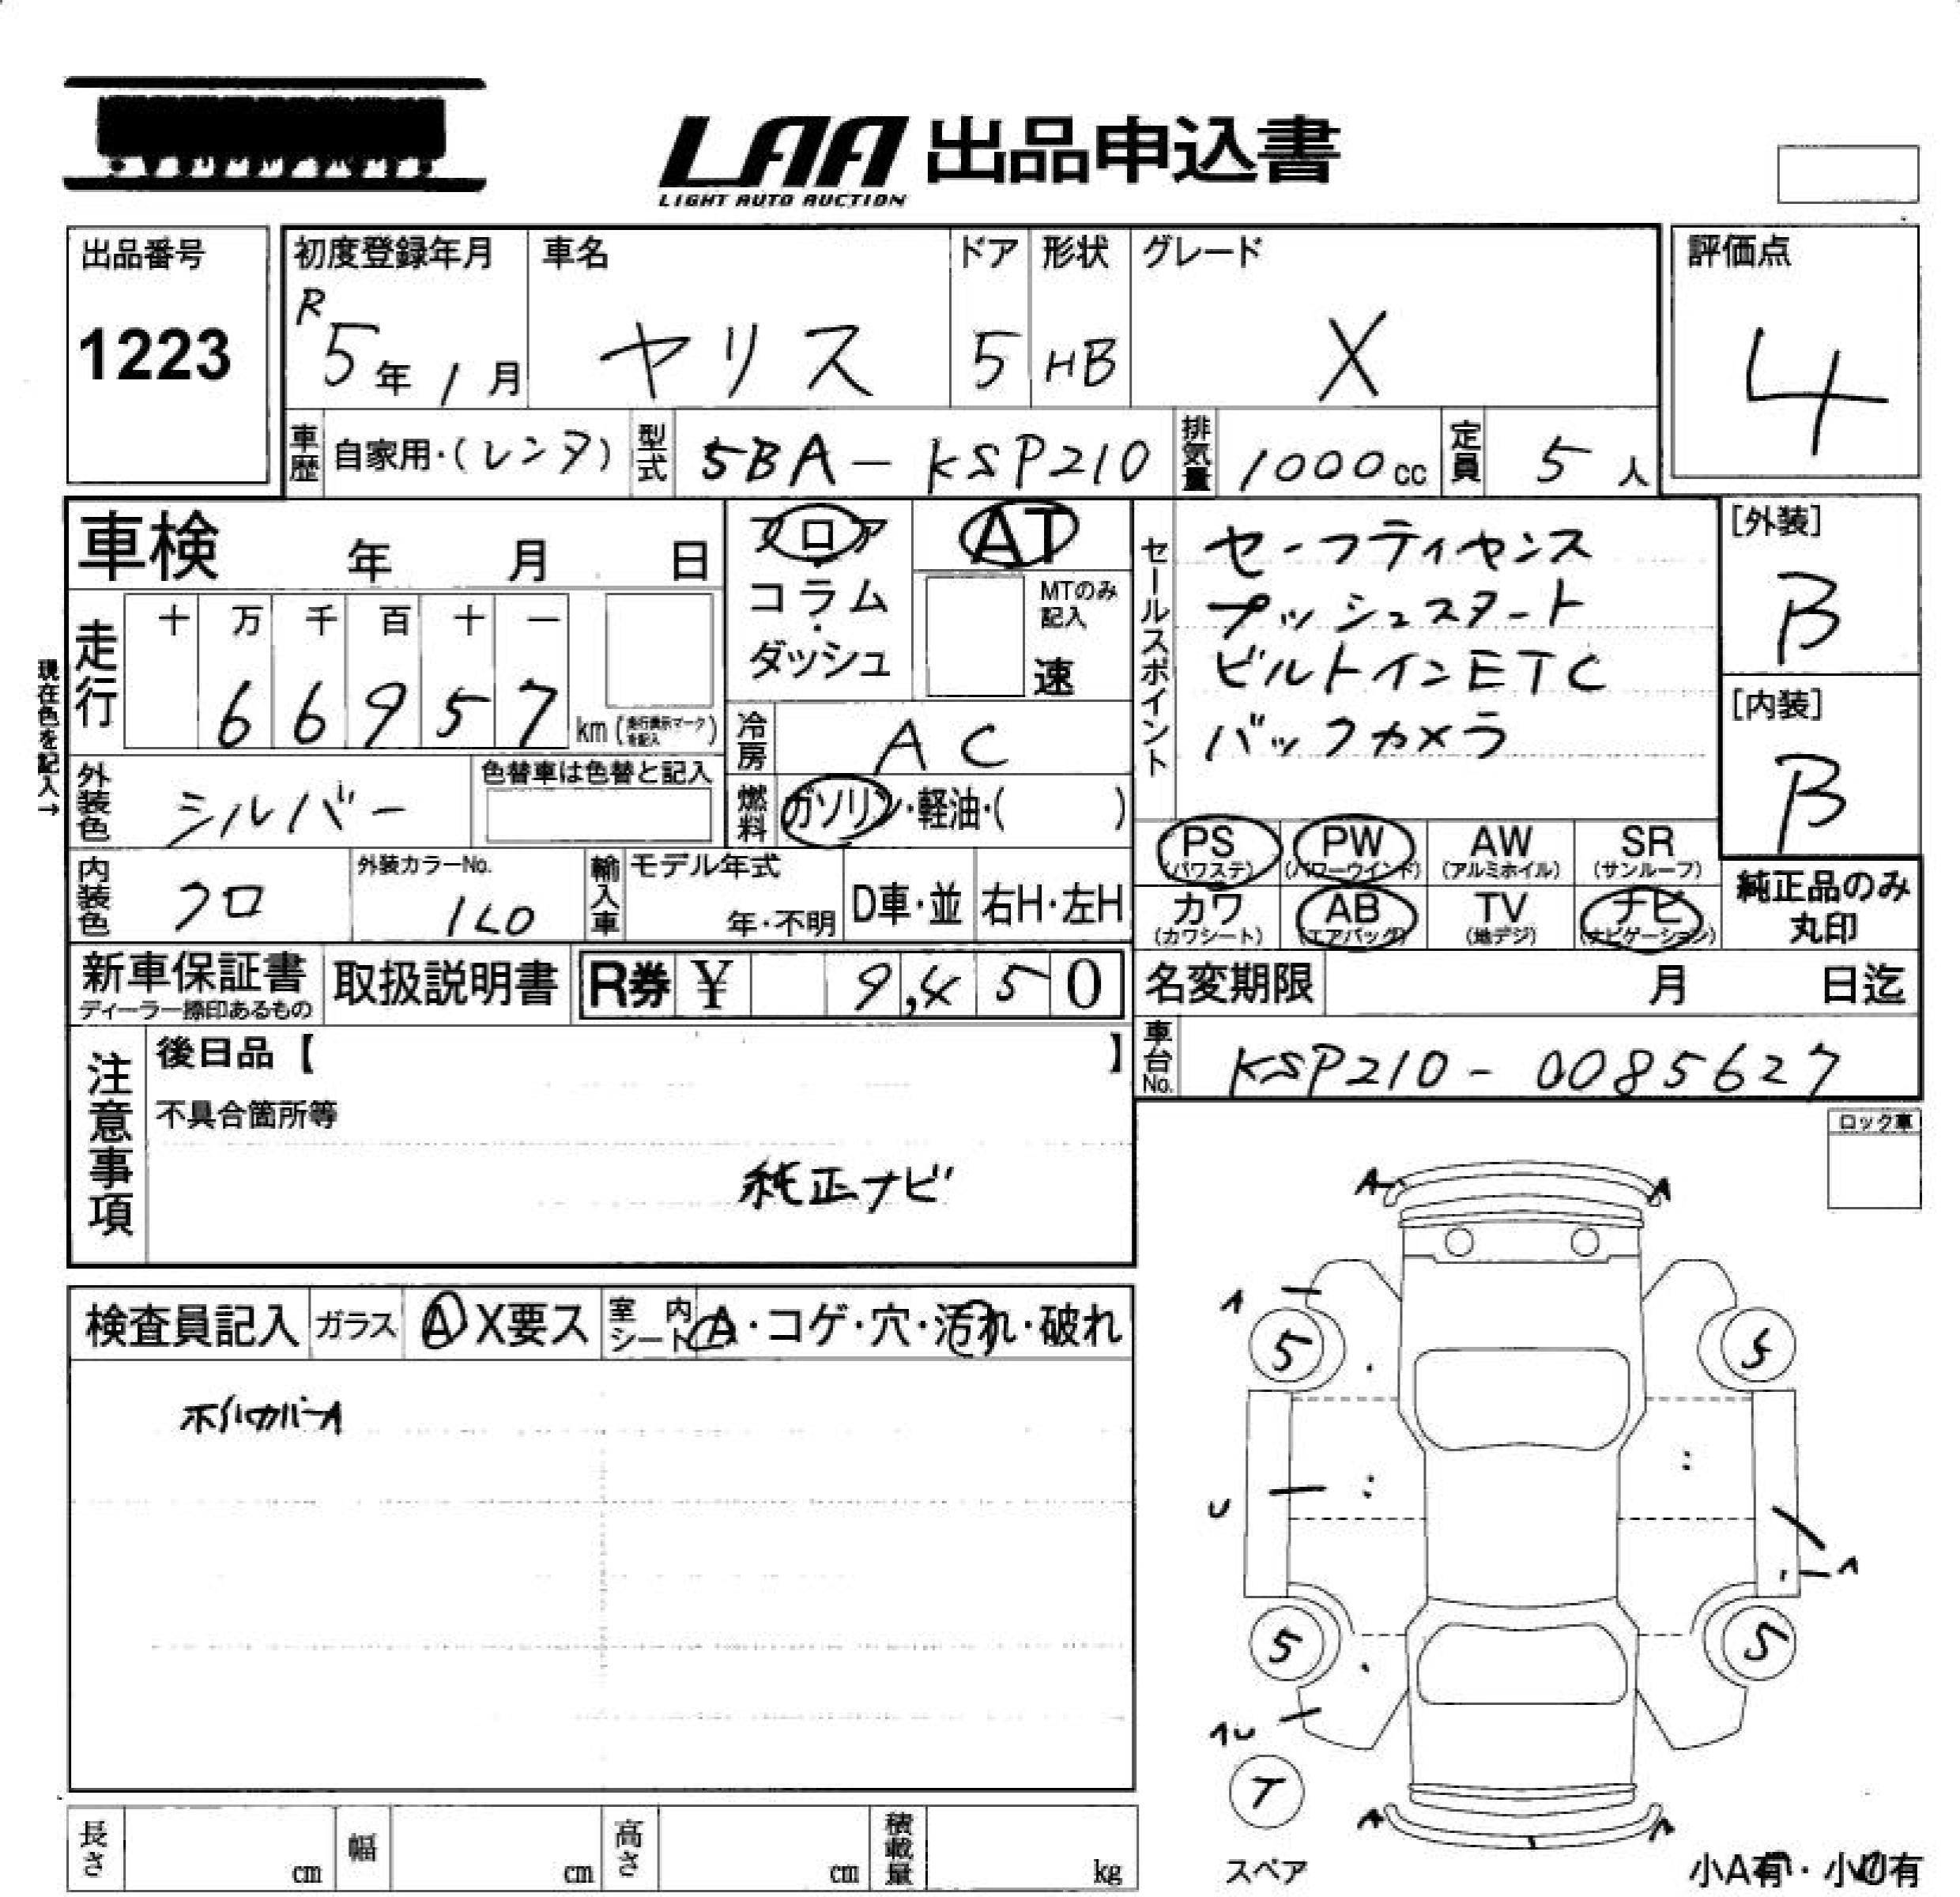 LAA 出品申込書
LIGHT AUTO AUCTION
出品番号
1223
初度登録年月
R5年1月
車名
ヤリス
ドア
5
形状
HB
グレード
X
評価点
4
車歴 自家用・(レンタ)
型式 5BA-KSP210
排気量 1000cc
定員 5人
車検 年 月 日
フロア・コラム・ダッシュ
AT
MTのみ記入
速
セールスポイント
セーフティセンス
プッシュスタート
ビルトインETC
バックカメラ
[外装]
B
[内装]
B
現在色を記入→
走行
十 万 千 百 十 一
6 6 9 5 7 km(走行表示マークを記入)
冷房 AC
外装色 シルバー
色替車は色替と記入
燃料 ガソリン・軽油・( )
PS
(パワステ)
PW
(パワーウインド)
AW
(アルミホイル)
SR
(サンルーフ)
カワ
(カワシート)
AB
(エアバッグ)
TV
(地デジ)
ナビ
(ナビゲーション)
純正品のみ
丸印
内装色 クロ
外装カラーNo.
1L0
輸入車 モデル年式
年・不明
D車・並
右H・左H
新車保証書
ディーラー捺印あるもの
取扱説明書
R券 ¥ 9,450
名変期限 月 日迄
車台No. KSP210-0085627
注意事項
後日品【 】
不具合箇所等
純正ナビ
ロック車
検査員記入
ガラス A X要ス
室内シート A・コゲ・穴・汚れ・破れ
ホイルカバーA
A A
A
5 5
U
A
5 5
AU
T
A A
スペア
小A有・小U有
長さ cm
幅 cm
高さ cm
積載量 kg